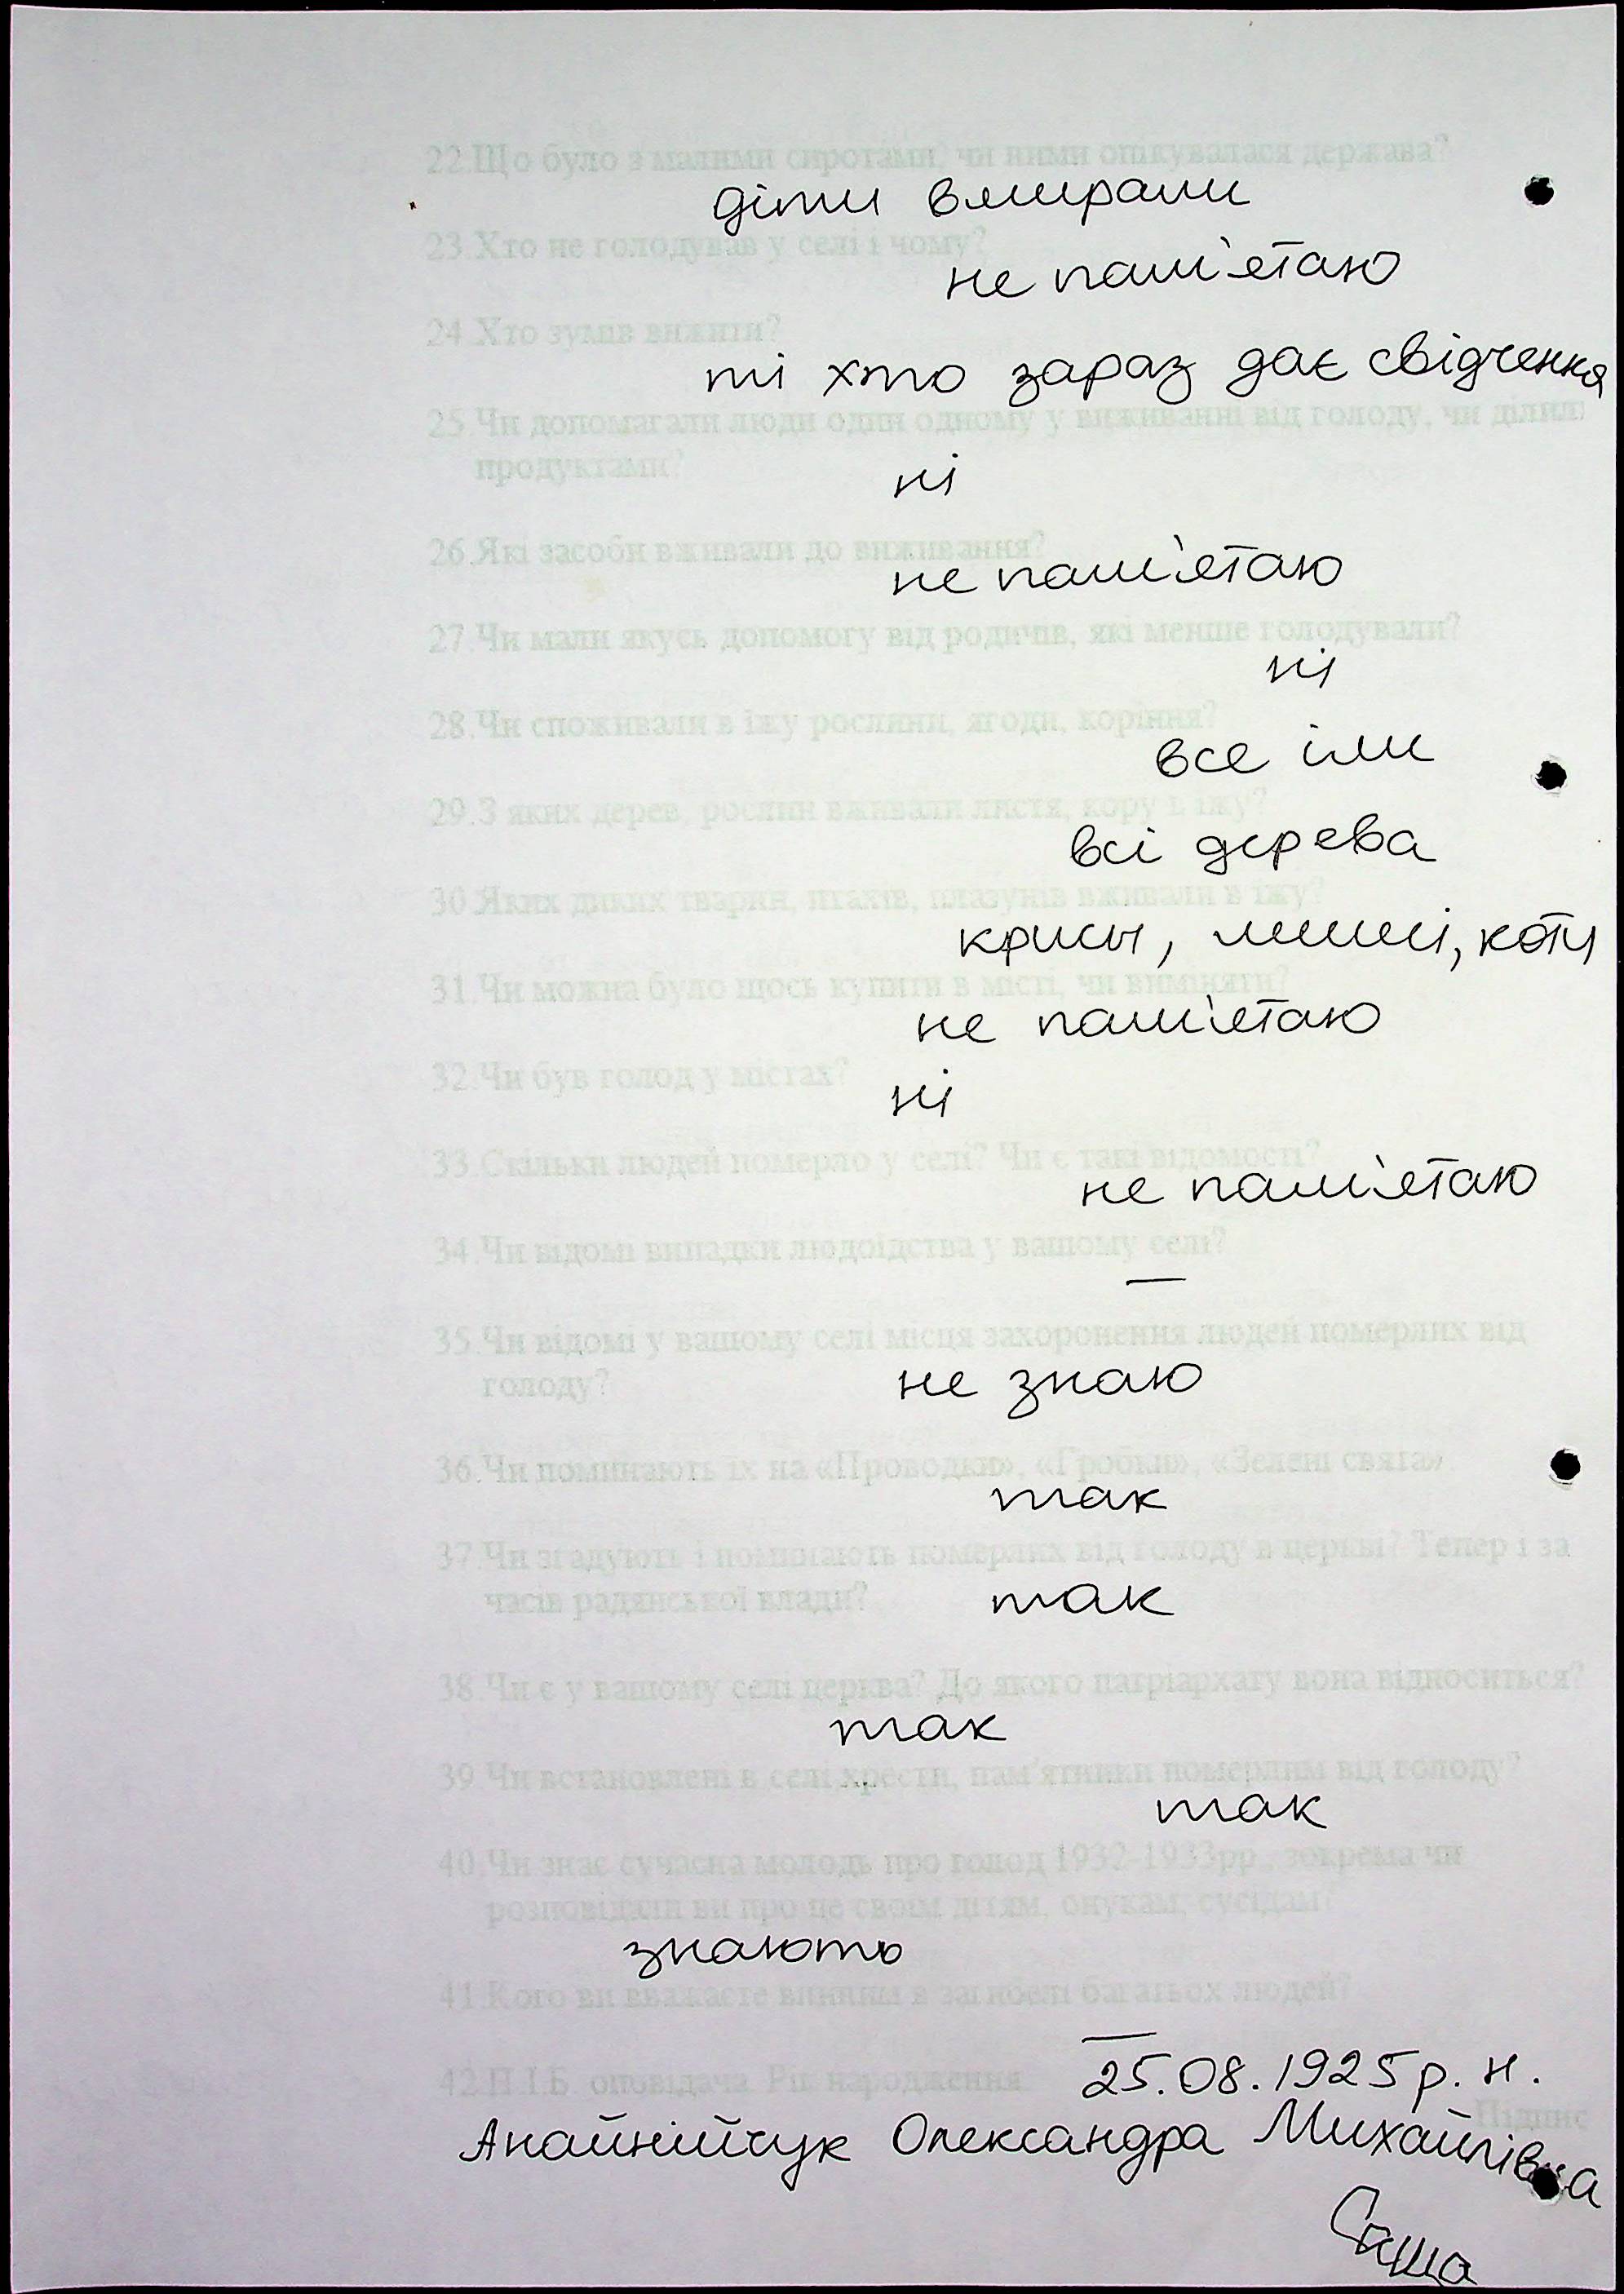 22.Що було з малими сиротами, чи ними опікувалася держава?
діти вмирали
23.Хто не голодував у селі і чому?
не пам'ятаю
24.Хто зумів вижити?
ті хто зараз дає свідчення
25.Чи допомагали люди один одному у виживанні від голоду, чи ділил
продуктами?
ні
26.Які засоби вживали до виживання?
не пам'ятаю
27.Чи мали якусь допомогу від родичів, які менше голодували?
ні
28.Чи споживали в їжу рослини, ягоди, коріння?
все їли
29.З яких дерев, рослин вживали листя, кору в їжу?
всі дерева
30.Яких диких тварин, птахів, плазунів вживали в їжу?
крисы, миші, коти
31.Чи можна було щось купити в місті, чи виміняти?
не пам'ятаю
32.Чи був голод у містах?
ні
33.Скільки людей померло у селі? Чи є такі відомості?
не пам'ятаю
34.Чи відомі випадки людоїдства у вашому селі?
—
35.Чи відомі у вашому селі місця захоронення людей померлих від
голоду?
не знаю
36.Чи поминають їх на «Проводки», «Гробки», «Зелені свята»
так
37.Чи згадують і поминають померлих від голоду в церкві? Тепер і за
часів радянської влади?
так
38.Чи є у вашому селі церква? До якого патріархату вона відноситься?
так
39.Чи встановлені в селі хрести, пам'ятники померлим від голоду?
так
40.Чи знає сучасна молодь про голод 1932-1933рр., зокрема чи
розповідали ви про це своїм дітям, онукам, сусідам?
знають
41.Кого ви вважаєте винним в загибелі багатьох людей?
—
42.П.І.Б. оповідача. Рік народження 25.08.1925 р. н.
Підпис
Олександра Михайлівна
Саша